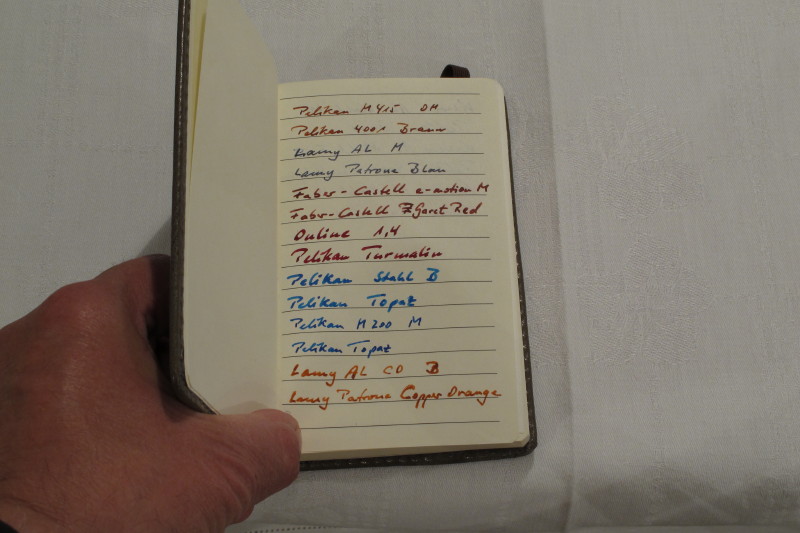 Pelikan M415 OM
Pelikan 4001 Braun
Lamy AL M
Lamy Patrone Blau
Faber-Castell e-motion M
Faber-Castell Garet Red
Online 1,4
Pelikan Turmalin
Pelikan Stahl B
Pelikan Topaz
Pelikan M200 M
Pelikan Topaz
Lamy AL CO B
Lamy Patrone Copper Orange